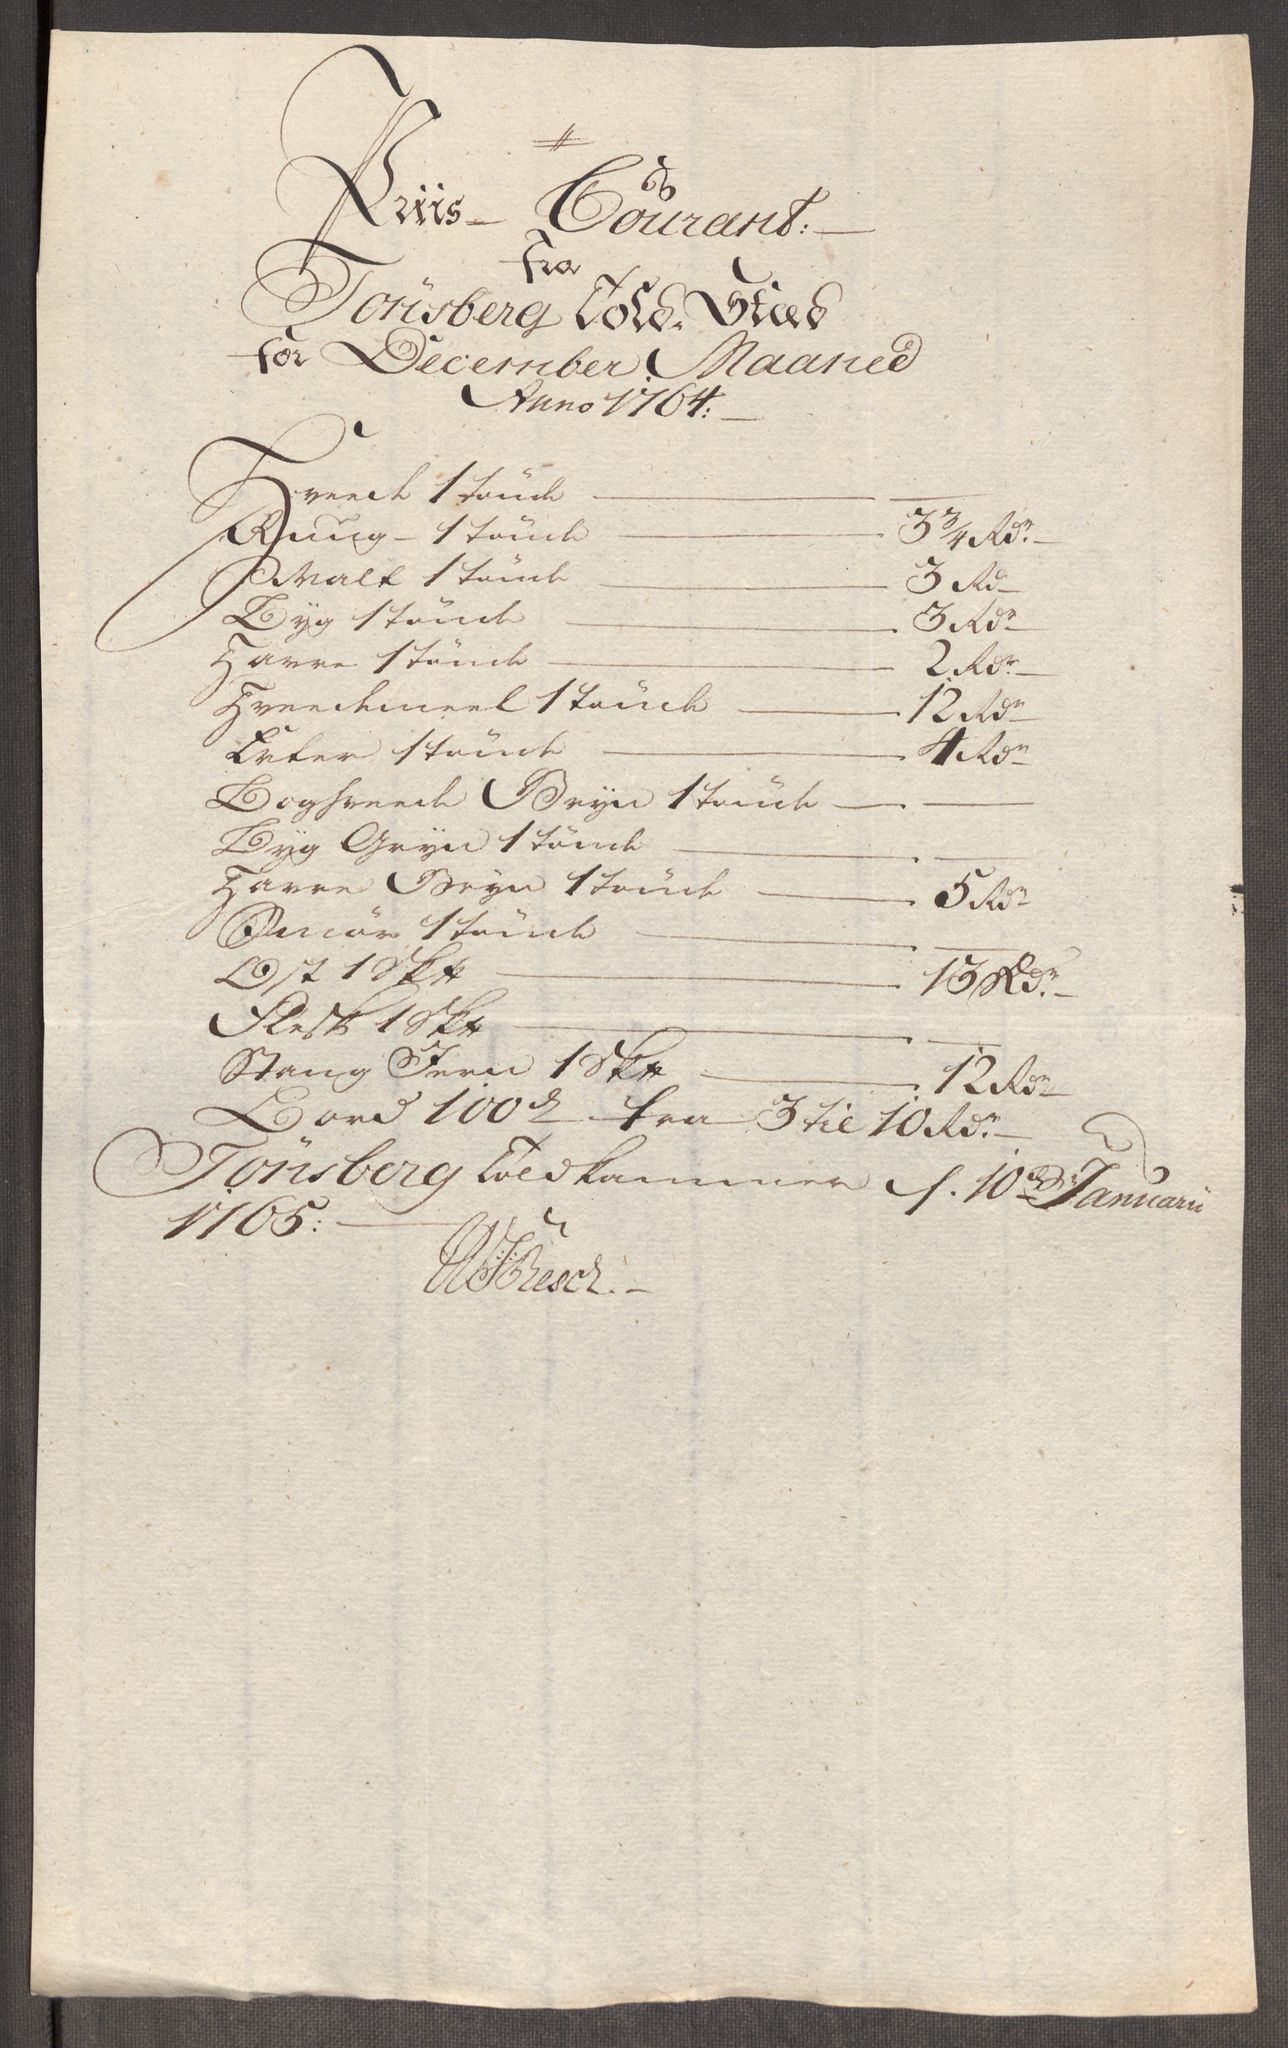 Priis- Courant:
fra
Tönsberg Told-Stæd
for December Maaned
Anno 1764:
Hveede 1 tönde
Rúúg 1 tönde 3 3/4 Rdr
Malt 1 tönde 3 Rd
Byg 1 tönde 3 Rdr
Havre 1 tönde 2 Rdr
Hveedemeel 1 tönde 12 Rdr
Erter 1 tönde 4 Rdr
Boghveede Gryn 1 tönde
Byg Gryn 1 tönde
Havre Gryn 1 tönde 5 Rdr
Smör 1 tönde
Ost 1 Sk℔ 13 Rdr
Flesk 1 Sk℔
Stang Jern 1 Sk℔ 12 Rdr
Bord 100de fra 3 til 10 Rdr
Tönsberg Toldkammer d. 10de Januarii
1765:
Resch.